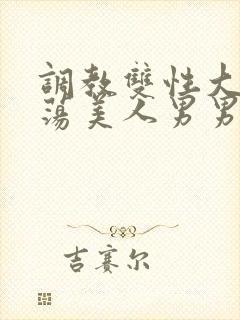 調教雙性大
蕩美人男男
吉賽尔